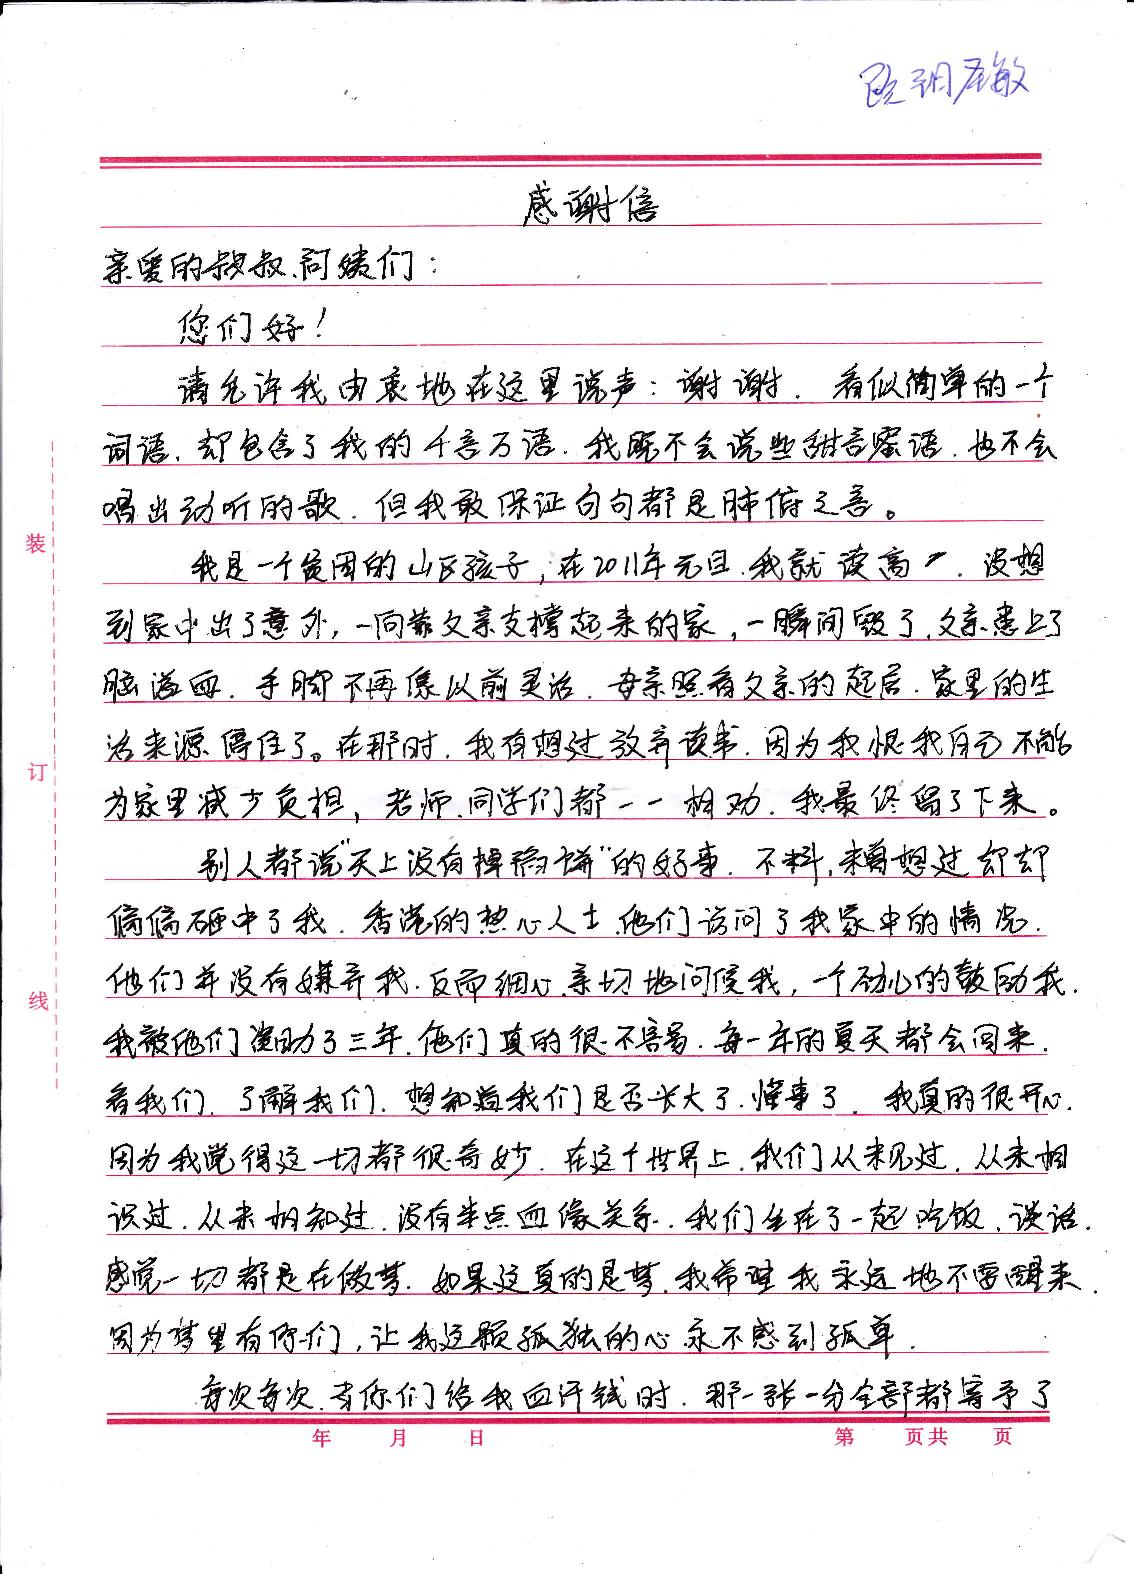 感谢信
亲爱的叔叔、阿姨们：
您们好！
请允许我由衷地在这里说声：谢谢．看似简单的一个
词语．却包含了我的千言万语．我既不会说些甜言蜜语．也不会
唱出动听的歌．但我敢保证句句都是肺俯之言。
我是一个贫困的山区孩子，在2011年元旦．我就读高一．没想
到家中出了意外，一向靠父亲支撑起来的家，一瞬间毁了．父亲患上了
脑溢血．手脚不再像以前灵活．母亲照看父亲的起居．家里的生
活来源停住了。在那时．我有想过放弃读书．因为我恨我自己不能
为家里减少负担，老师．同学们都一一相劝．我最终留了下来。
别人都说“天上没有掉馅饼”的好事．不料，未曾想过却却
偏偏砸中了我．香港的热心人士．他们访问了我家中的情况．
他们并没有嫌弃我．反而细心．亲切地问候我，一个劲儿的鼓励我．
我被他们资助了三年．他们真的很不容易．每一年的夏天都会回来．
看我们．了解我们．想知道我们是否长大了．懂事了．我真的很开心．
因为我觉得这一切都很奇妙．在这个世界上．我们从未见过．从未相
识过．从未相知过．没有半点血缘关系．我们坐在了一起吃饭．谈话．
感觉一切都是在做梦．如果这真的是梦．我希望我永远地不要醒来．
因为梦里有你们，让我这颗孤独的心永不感到孤单．
每次每次．当你们给我血汗钱时．那一张一分全部都寄予了
装
订
线
年 月 日 第 页共 页